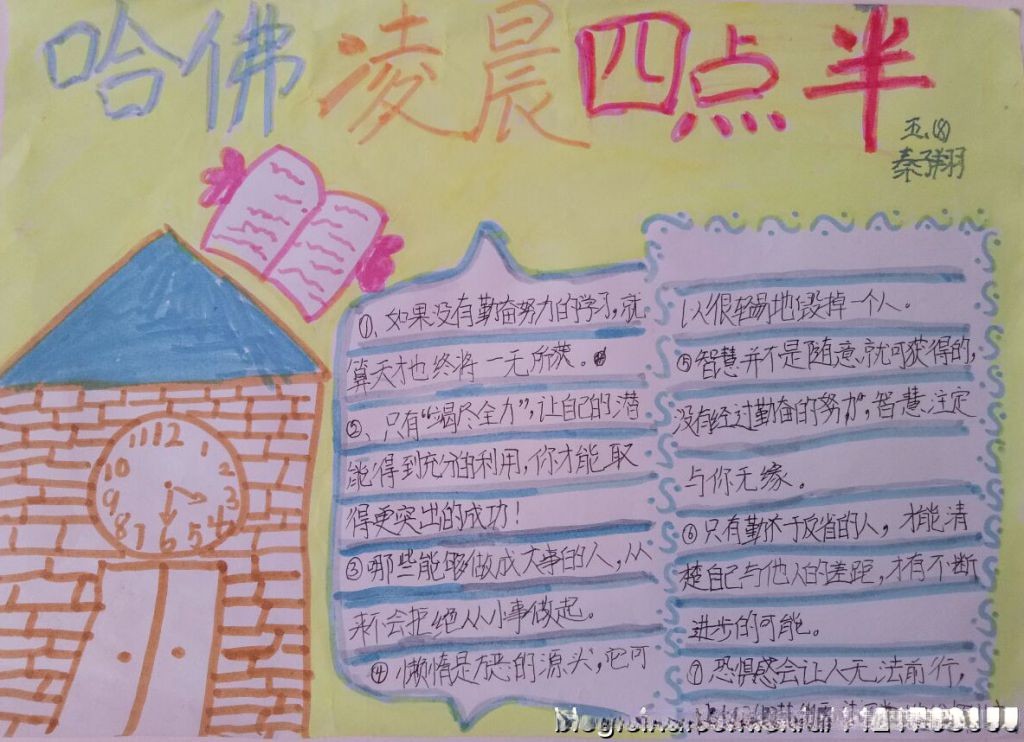 哈佛凌晨四点半
五.(8)
秦子翔
11 12 1
10 2
9 3
8 4
7 6 5
①、如果没有勤奋努力的学习,就
算天才也终将一无所获。
②、只有“竭尽全力”,让自己的潜
能得到充分的利用,你才能取
得更突出的成功!
③那些能够做成大事的人,从
来不会拒绝从小事做起。
④懒惰是万恶的源头,它可
以很轻易地毁掉一个人。
⑤智慧并不是随意就可获得的,
没有经过勤奋的努力,智慧注定
与你无缘。
⑥只有勤于反省的人,才能清
楚自己与他人的差距,才有不断
进步的可能。
⑦恐惧感会让人无法前行,